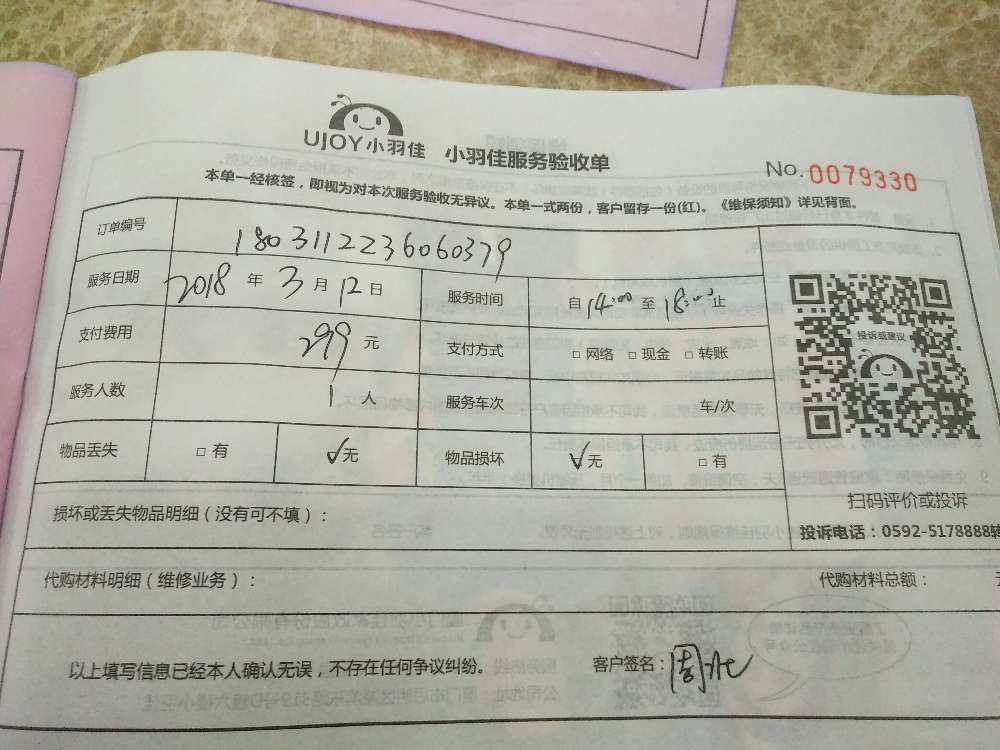 UJOY小羽佳 小羽佳服务验收单
No. 0079330
本单一经核签，即视为对本次服务验收无异议。本单一式两份，客户留存一份(红)。《维保须知》详见背面。
订单编号 1803112236060379
服务日期 2018 年 3 月 12 日 服务时间 自 14:00 至 18:00 止
支付费用 299 元 支付方式 □ 网络 □ 现金 □ 转账
投诉或建议
服务人数 1 人 服务车次 车/次
物品丢失 □ 有 √无 物品损坏 √无 □ 有
扫码评价或投诉
损坏或丢失物品明细（没有可不填）：
投诉电话：0592-5178888转
代购材料明细（维修业务）： 代购材料总额：
以上填写信息已经本人确认无误，不存在任何争议纠纷。 客户签名：